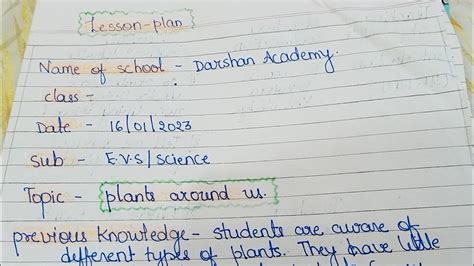 Lesson-plan
Name of school - Darshan Academy.
class -
Date - 16/01/2023
Sub - E.V.S/Science
Topic - plants around us.
previous knowledge - students are aware of
different types of plants. They have little